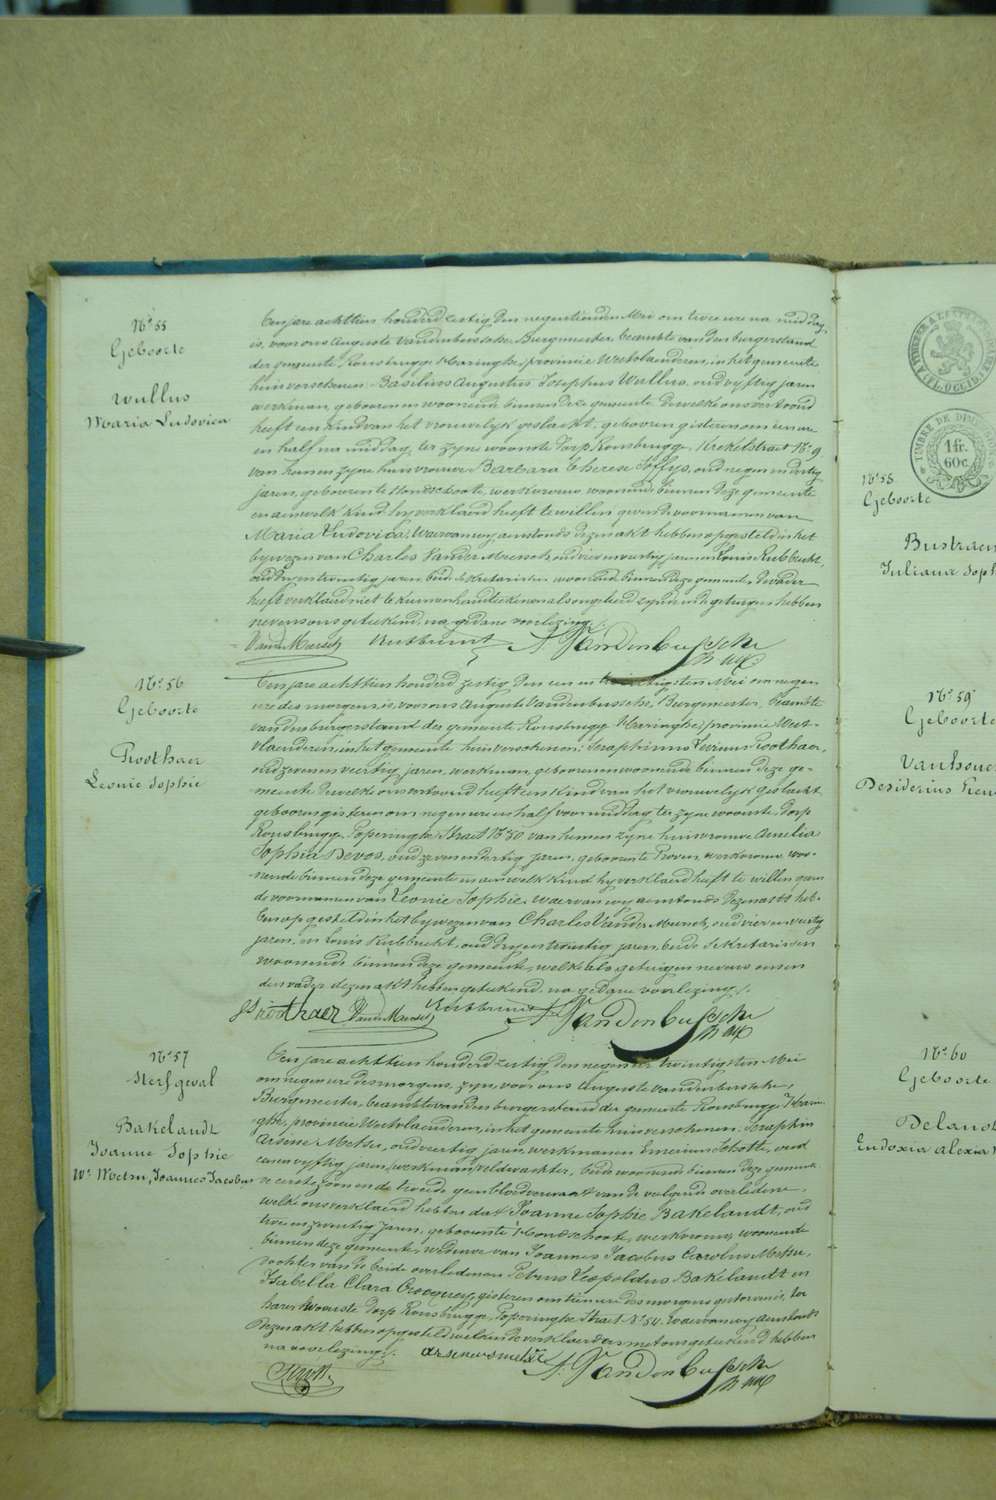 N° 55
Geboorte
Wullus
Maria Ludovica
Een jare achttien honderd zestig den negentienden Mei om twee ure na middag,
is, voor ons Auguste Vandenbussche, Burgemeester, beambte van den burgerstand
der gemeente Rousbrugge Haringhe, provincie Westvlaenderen, in het gemeente
huis verschenen: Basilius Augustus Josephus Wullus, oud vyftig jaren
werkman, geboren en woonende binnen deze gemeente dewelke ons vertoond
heeft een kind van het vrouwelyk geslacht, geboren gisteren om een ure
en half na middag, ter zyne woonste Dorp Rousbrugge, Krekelstraet N° 9
van hem en zyne huisvrouwe Barbara Therese Soffys, oud negen en dertig
jaren, geboren te Hondschoote, werkvrouw, woonende binnen deze gemeente
en aen welk kind hy verklaerd heeft te willen geven de voornamen van
Maria Ludovica. Waervan wy aenstonds dezen akt hebben opgesteld in het
bywezen van Charles Vander Meersch, oud vier en veertig jaren en Louis Rubbrecht,
oud dry en twintig jaren, beide sekretarissen, woonende binnen deze gemeente. De vader
heeft verklaerd niet te kunnen handteekenen als ongeleerd zynde, en de getuigen hebben
nevens ons geteekend, na gedane voorlezing.
VanderMeersch Rubbrecht A. Vandenbussche
N° 56
Geboorte
Roothaer
Leonie Sophie
Een jare achttien honderd zestig, den een en twintigsten Mei om negen
ure des morgens, is, voor ons Auguste Vandenbussche, Burgemeester, Beambte
van den burgerstand der gemeente Rousbrugge Haringhe, provincie West-
vlaenderen, in het gemeente huis verschenen: Seraphinus Livinus Roothaer,
oud zeven en veertig jaren, werkman, geboren en woonende binnen deze ge-
meente dewelke ons vertoond heeft een kind van het vrouwelyk geslacht,
geboren gisteren om negen ure en half voor middag, ter zyne woonste, dorp
Rousbrugge, Poperinghe Straet N° 50 van hem en zyne huisvrouwe Amelia
Sophia Devos, oud zeven en dertig jaren, geboren te Proven, werkvrouw, woo-
nende binnen deze gemeente en aen welk kind hy verklaerd heeft te willen geven
de voornamen van Leonie Sophie. Waervan wy aenstonds dezen akt heb-
ben opgesteld in het bywezen van Charles Vander Meersch, oud vier en veertig
jaren, en Louis Rubbrecht, oud dry en twintig jaren, beide sekretarissen
woonende binnen deze gemeente, welke als getuigen nevens ons en
den vader dezen akt hebben geteekend, na gedane voorlezing.
Roothaer VanderMeersch Rubbrecht A. Vandenbussche
N° 57
Sterfgeval
Bakelandt
Joanne Sophie
We Metsu, Joannes Jacobus
Een jare achttien honderd zestig den negen en twintigsten Mei
om negen ure des morgens, zyn, voor ons Auguste Vandenbussche,
Burgemeester, beambte van den burgerstand der gemeente Rousbrugge Harin-
ghe, provincie Westvlaenderen, in het gemeente huis verschenen: Seraphin
Arsene Metsu, oud veertig jaren, werkman en Livinus Schotte, oud
een en vyftig jaren, veldwachter, beide woonende binnen deze gemeente
de eerste zoon en de tweede geen bloedverwant van de volgende overledene,
welke ons verklaerd hebben dat Joanne Sophie Bakelandt, oud
twee en zeventig jaren, geboren te Hondschoote, werkvrouw, woonende
binnen deze gemeente, weduwe van Joannes Jacobus Carolus Metsu,
dochter van de beide overledenen Petrus Leopoldus Bakelandt en
Isabella Clara gisteren om tien ure des morgens gestorven is, ten
haren woonste Dorp Rousbrugge, Poperinghe Straet N° 54. Waervan wy aenstonds
dezen akt hebben opgesteld welken de verklaerders met ons geteekend hebben
na voorlezing. A. Vandenbussche
N° 58
Geboorte
Juliana
N° 59
Geboorte
Desiderius
N° 60
Geboorte
Eudoxia Alexia
TIMBRE DE
1 fr.
60 c.